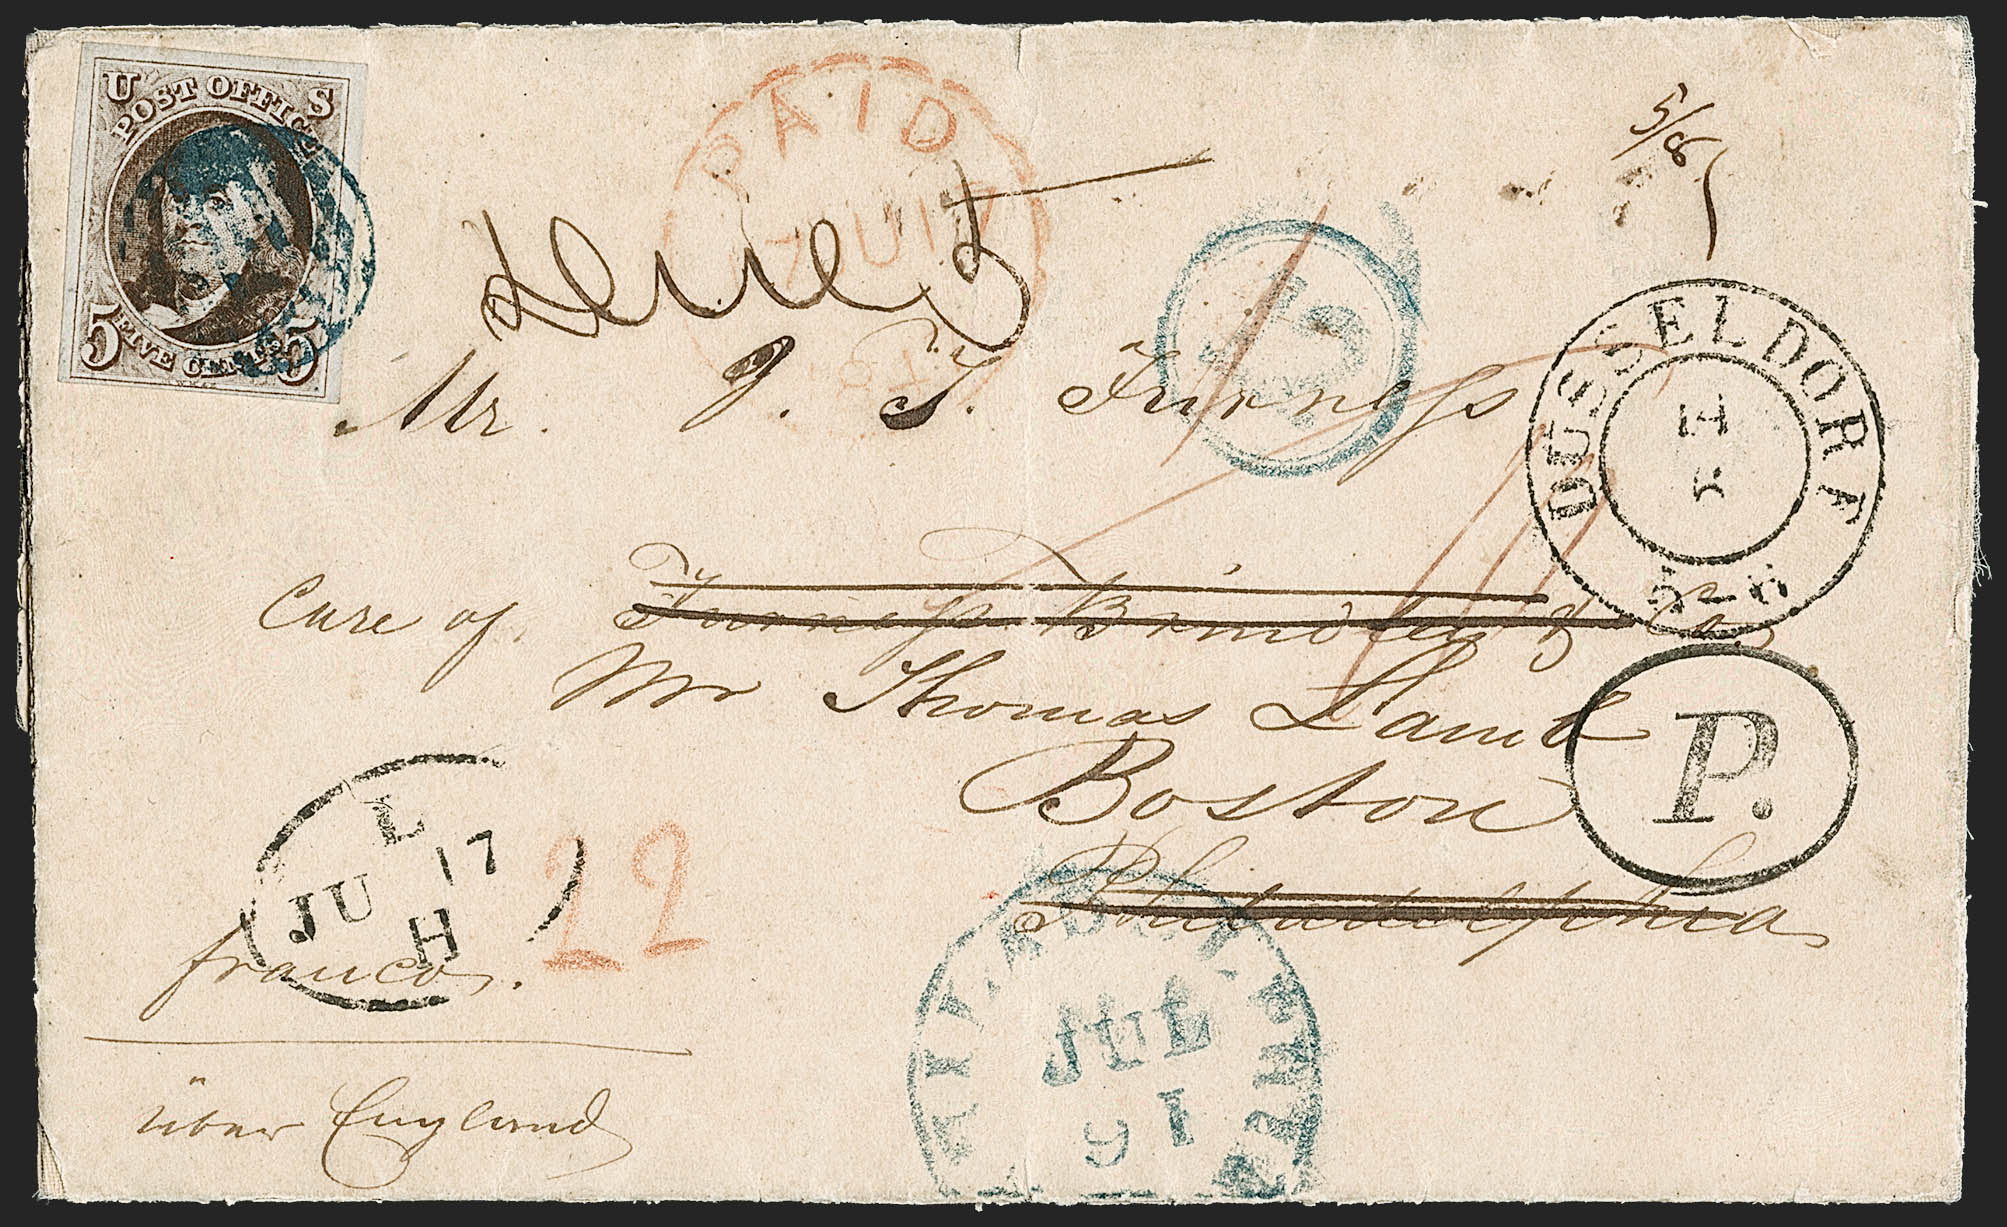 U S
POST OFFICE
5 FIVE CENTS 5
PAID
JU 17
5/8
5
Mr. J. T. Furness
DUSSELDORF
5-6
Care of Furness Brindley & Co.
Mr Thomas Lamb
Boston
P.
Philadelphia
L
JU 17
H
22
franco.
über England
PHILADELPHIA
JUL